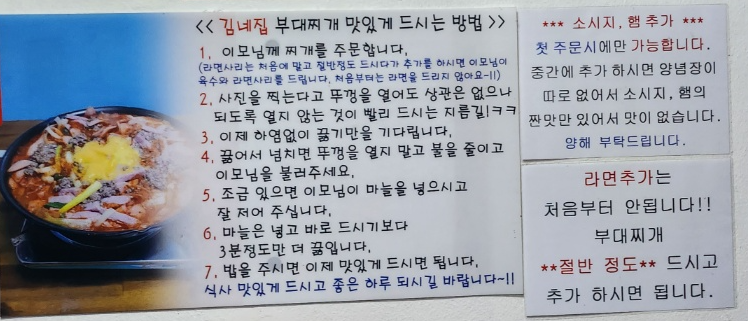 << 김네집 부대찌개 맛있게 드시는 방법 >>
1, 이모님께 찌개를 주문합니다,
(라면사리는 처음에 말고 절반정도 드시다가 추가를 하시면 이모님이
육수와 라면사리를 드립니다, 처음부터는 라면을 드리지 않아요~!!)
2, 사진을 찍는다고 뚜껑을 열어도 상관은 없으나
되도록 열지 않는 것이 빨리 드시는 지름길!ㅋㅋ
3, 이제 하염없이 끓기만을 기다립니다,
4, 끓어서 넘치면 뚜껑을 열지 말고 불을 줄이고
이모님을 불러주세요,
5, 조금 있으면 이모님이 마늘을 넣으시고
잘 저어 주십니다,
6, 마늘은 넣고 바로 드시기보다
3분정도만 더 끓입니다,
7, 밥을 주시면 이제 맛있게 드시면 됩니다,
식사 맛있게 드시고 좋은 하루 되시길 바랍니다~!!
*** 소시지, 햄 추가 ***
첫 주문시에만 가능합니다.
중간에 추가 하시면 양념장이
따로 없어서 소시지, 햄의
짠맛만 있어서 맛이 없습니다.
양해 부탁드립니다.
라면추가는
처음부터 안됩니다!!
부대찌개
**절반 정도** 드시고
추가 하시면 됩니다.